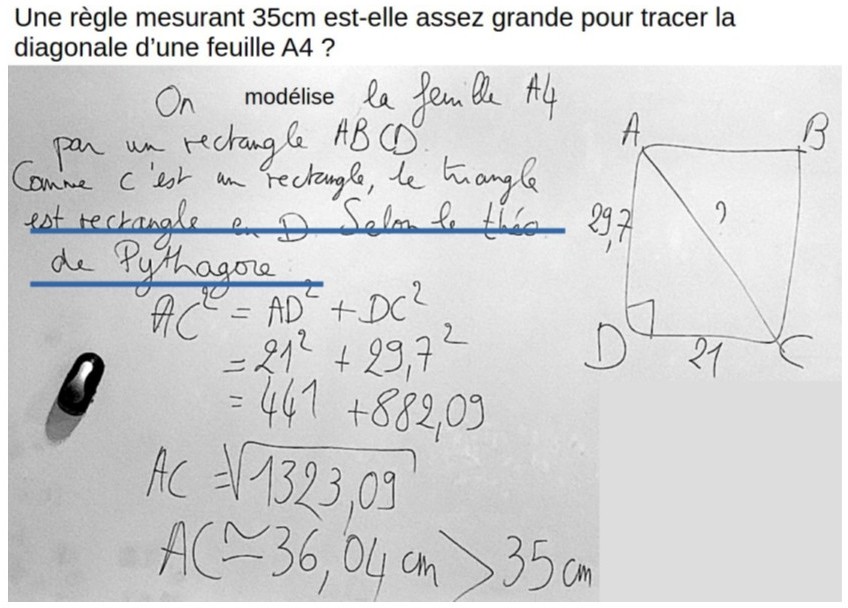 Une règle mesurant 35cm est-elle assez grande pour tracer la
diagonale d'une feuille A4 ?
On modélise la feuille A4
par un rectangle ABCD.
Comme c'est un rectangle, le triangle
est rectangle en D. Selon le théo
de Pythagore
AC² = AD² + DC²
= 21² + 29,7²
= 441 + 882,09
AC = √1323,09
AC ≃ 36,04 cm > 35 cm
A B
29,7 ?
D 21 C